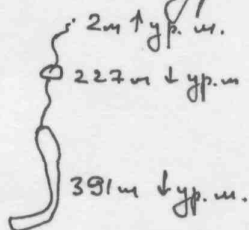 2м ↑ ур. м.
227м ↓ ур. м
391м ↓ ур. м.